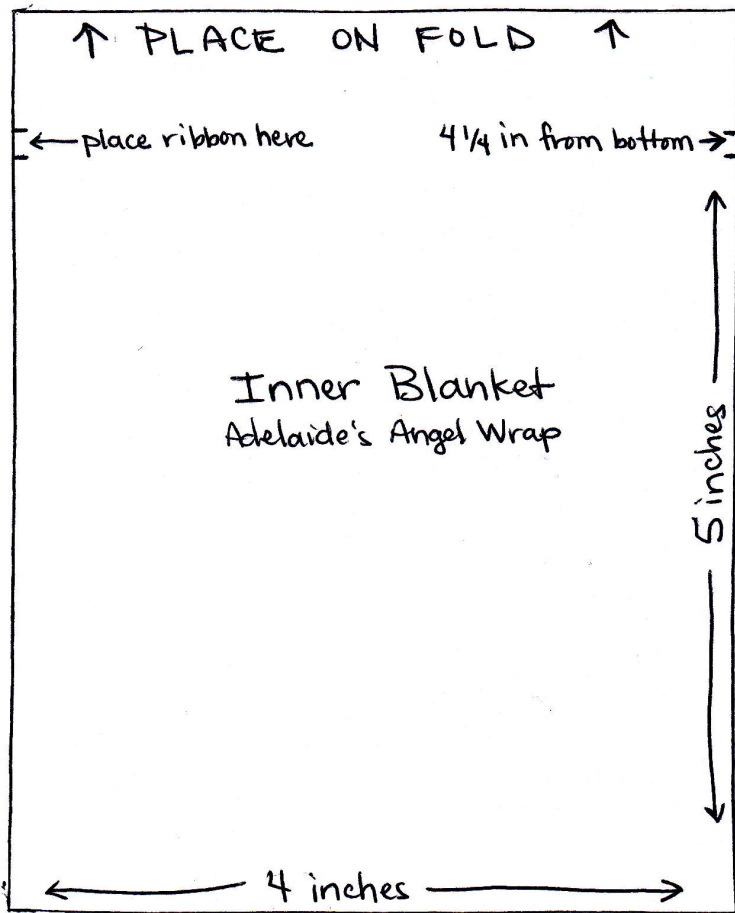 ↑ PLACE ON FOLD ↑
←place ribbon here 4 1/4 in from bottom→
Inner Blanket
Adelaide's Angel Wrap
5 inches
4 inches